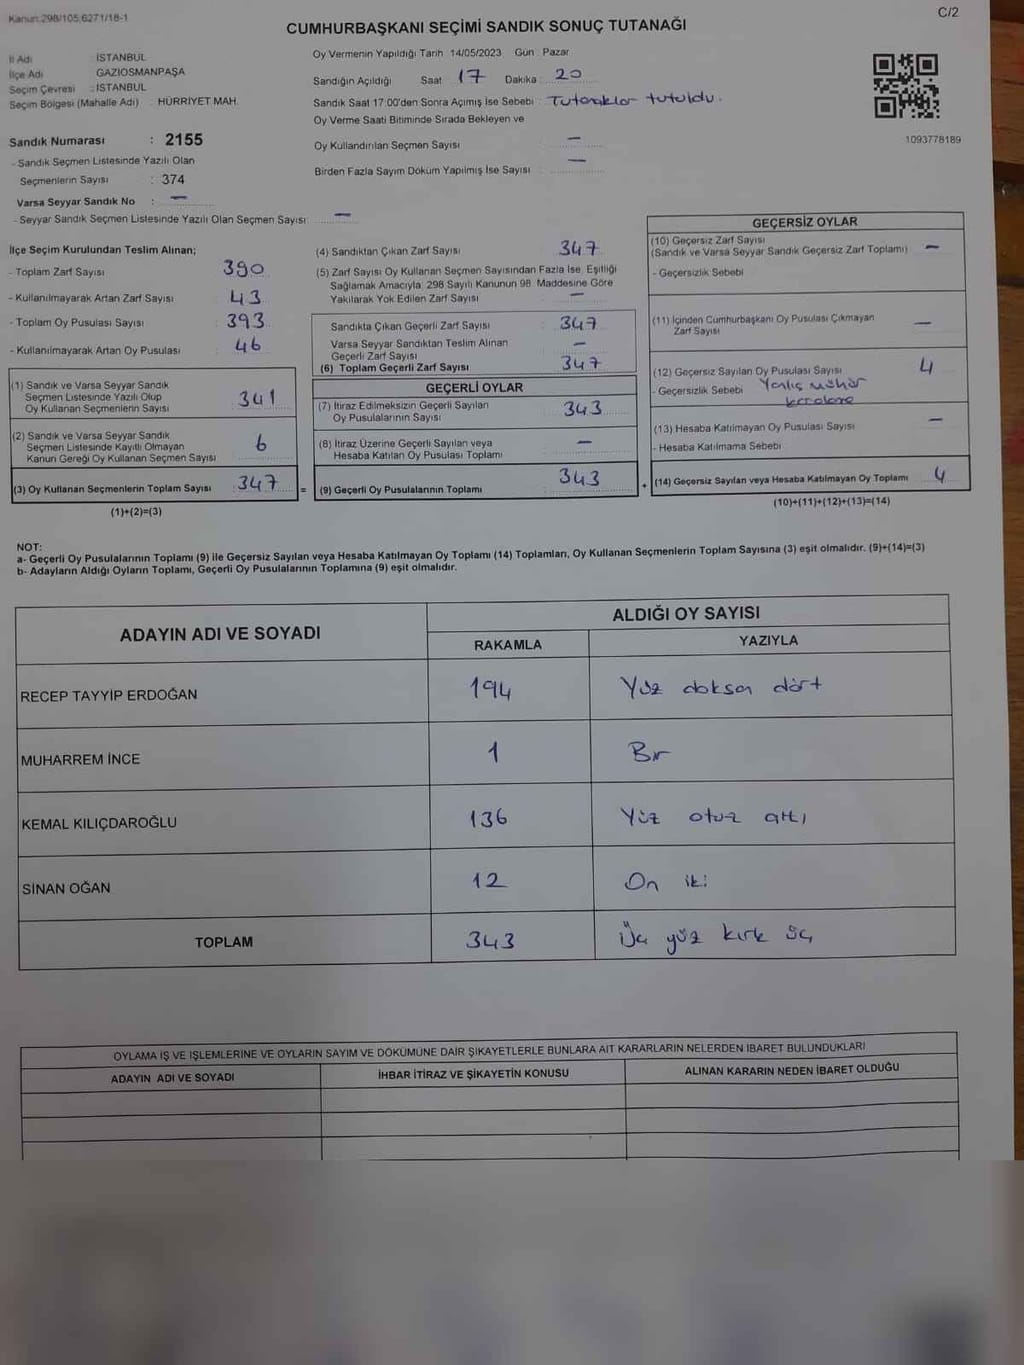 Kanun:298/105;6271/18-1
C/2
CUMHURBAŞKANI SEÇİMİ SANDIK SONUÇ TUTANAĞI
İl Adı : İSTANBUL
İlçe Adı : GAZİOSMANPAŞA
Seçim Çevresi : İSTANBUL
Seçim Bölgesi (Mahalle Adı) : HÜRRİYET MAH.
Oy Vermenin Yapıldığı Tarih 14/05/2023 Gün : Pazar
Sandığın Açıldığı Saat 17 Dakika : 20
Sandık Saat 17:00'den Sonra Açımış İse Sebebi : Tutanaklar tutuldu.
Oy Verme Saati Bitiminde Sırada Bekleyen ve
Oy Kullandırılan Seçmen Sayısı : —
Birden Fazla Sayım Döküm Yapılmış İse Sayısı : —
1093778189
Sandık Numarası : 2155
- Sandık Seçmen Listesinde Yazılı Olan
Seçmenlerin Sayısı : 374
Varsa Seyyar Sandık No : —
- Seyyar Sandık Seçmen Listesinde Yazılı Olan Seçmen Sayısı : —
İlçe Seçim Kurulundan Teslim Alınan;
- Toplam Zarf Sayısı 390
- Kullanılmayarak Artan Zarf Sayısı : 43
- Toplam Oy Pusulası Sayısı : 393
- Kullanılmayarak Artan Oy Pusulası : 46
(1) Sandık ve Varsa Seyyar Sandık
Seçmen Listesinde Yazılı Olup
Oy Kullanan Seçmenlerin Sayısı : 341
(2) Sandık ve Varsa Seyyar Sandık
Seçmen Listesinde Kayıtlı Olmayan
Kanun Gereği Oy Kullanan Seçmen Sayısı : 6
(3) Oy Kullanan Seçmenlerin Toplam Sayısı : 347
(1)+(2)=(3)
=
(4) Sandıktan Çıkan Zarf Sayısı : 347
(5) Zarf Sayısı Oy Kullanan Seçmen Sayısından Fazla İse, Eşitliği
Sağlamak Amacıyla, 298 Sayılı Kanunun 98. Maddesine Göre
Yakılarak Yok Edilen Zarf Sayısı : —
Sandıkta Çıkan Geçerli Zarf Sayısı : 347
Varsa Seyyar Sandıktan Teslim Alınan
Geçerli Zarf Sayısı : —
(6) Toplam Geçerli Zarf Sayısı : 347
GEÇERLİ OYLAR
(7) İtiraz Edilmeksizin Geçerli Sayılan
Oy Pusulalarının Sayısı : 343
(8) İtiraz Üzerine Geçerli Sayılan veya
Hesaba Katılan Oy Pusulası Toplamı : —
(9) Geçerli Oy Pusulalarının Toplamı : 343
+
GEÇERSİZ OYLAR
(10) Geçersiz Zarf Sayısı
(Sandık ve Varsa Seyyar Sandık Geçersiz Zarf Toplamı) : —
- Geçersizlik Sebebi
(11) İçinden Cumhurbaşkanı Oy Pusulası Çıkmayan
Zarf Sayısı —
(12) Geçersiz Sayılan Oy Pusulası Sayısı 4
- Geçersizlik Sebebi : Yanlış mühür
(13) Hesaba Katılmayan Oy Pusulası Sayısı : —
- Hesaba Katılmama Sebebi
(14) Geçersiz Sayılan veya Hesaba Katılmayan Oy Toplamı : 4
(10)+(11)+(12)+(13)=(14)
NOT:
a- Geçerli Oy Pusulalarının Toplamı (9) ile Geçersiz Sayılan veya Hesaba Katılmayan Oy Toplamı (14) Toplamları, Oy Kullanan Seçmenlerin Toplam Sayısına (3) eşit olmalıdır. (9)+(14)=(3)
b- Adayların Aldığı Oyların Toplamı, Geçerli Oy Pusulalarının Toplamına (9) eşit olmalıdır.
ADAYIN ADI VE SOYADI
ALDIĞI OY SAYISI
RAKAMLA YAZIYLA
RECEP TAYYİP ERDOĞAN 194 Yüz doksan dört
MUHARREM İNCE 1 Bir
KEMAL KILIÇDAROĞLU 136 Yüz otuz altı
SİNAN OĞAN 12 On iki
TOPLAM 343 Üç yüz kırk üç
OYLAMA İŞ VE İŞLEMLERİNE VE OYLARIN SAYIM VE DÖKÜMÜNE DAİR ŞİKAYETLERLE BUNLARA AİT KARARLARIN NELERDEN İBARET BULUNDUKLARI
ADAYIN ADI VE SOYADI İHBAR İTİRAZ VE ŞİKAYETİN KONUSU ALINAN KARARIN NEDEN İBARET OLDUĞU